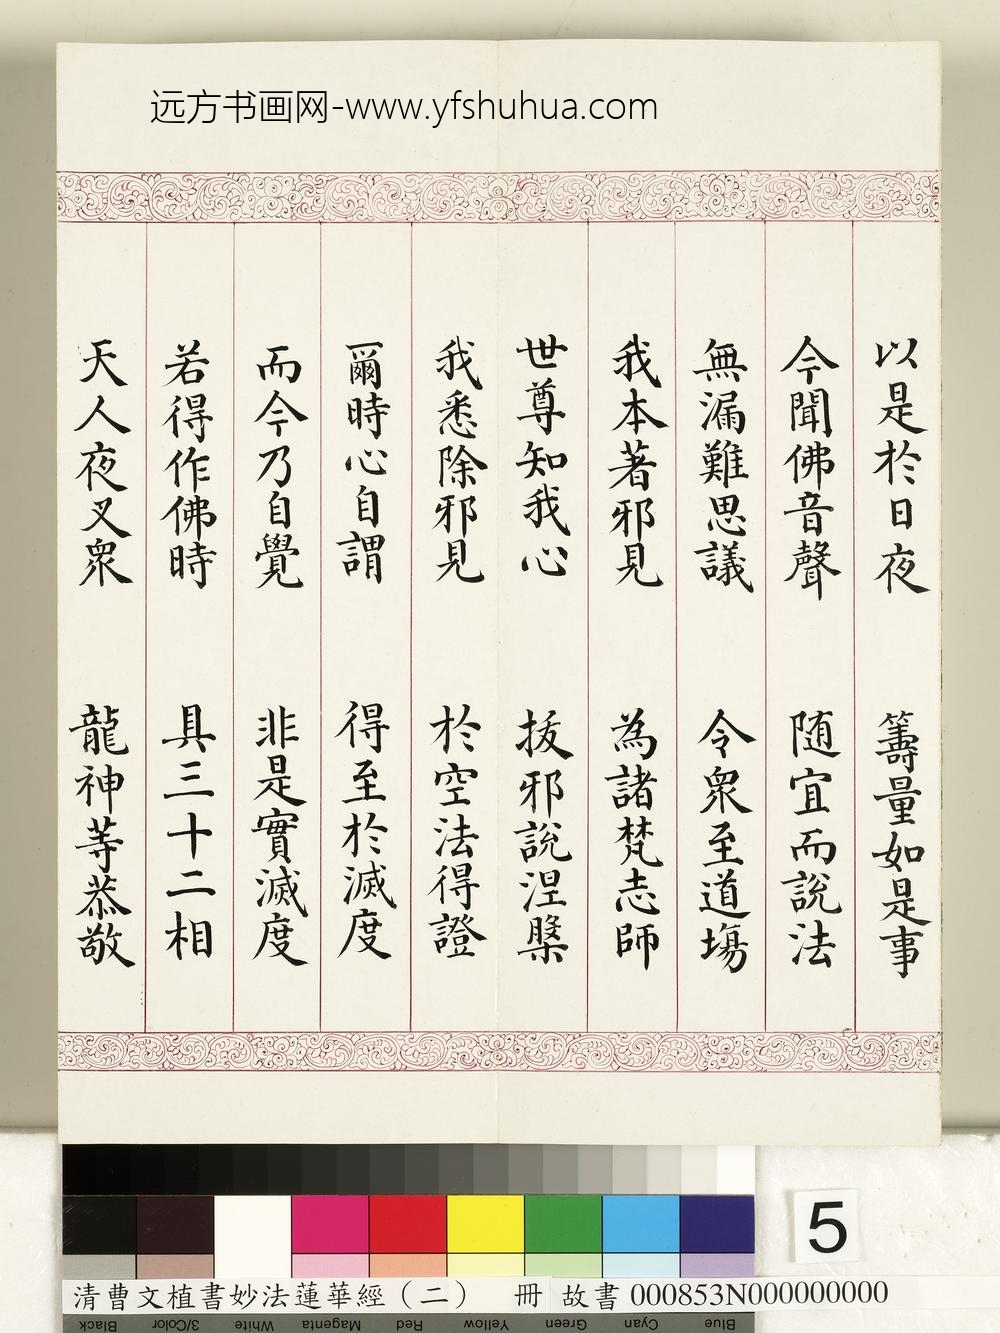 远方书画网-www.yfshuhua.com
以是於日夜 籌量如是事
今聞佛音聲 随宜而說法
無漏難思議 令衆至道場
我本著邪見 為諸梵志師
世尊知我心 拔邪說涅槃
我悉除邪見 於空法得證
爾時心自謂 得至於滅度
而今乃自覺 非是實滅度
若得作佛時 具三十二相
天人夜叉衆 龍神等恭敬
5
清曹文植書妙法蓮華經（二） 冊 故書 000853N000000000
Black 3/Color White Magenta Red Yellow Green Cyan Blue